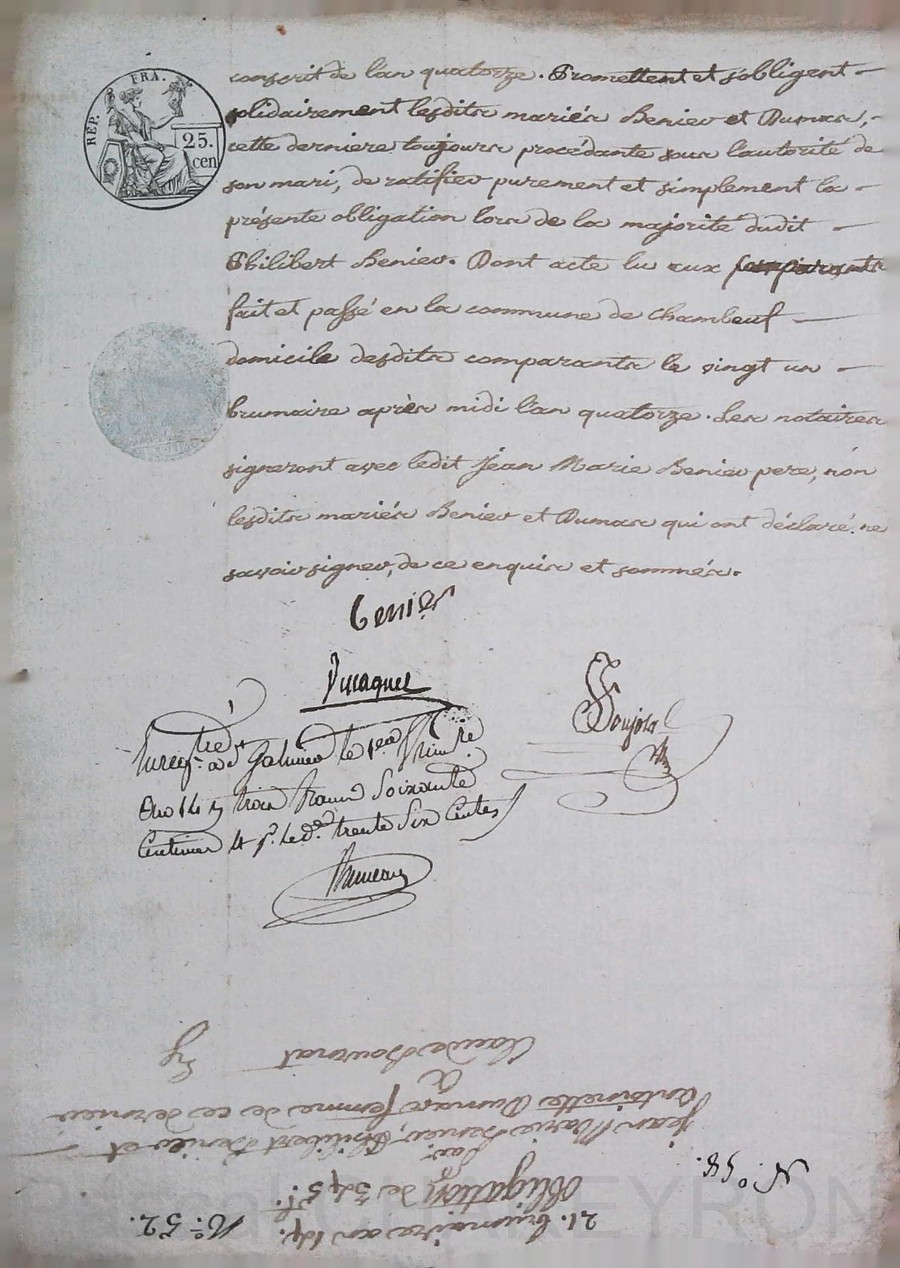 REP. FRA.
25.
cen
conscrit de l'an quatorze. Promettent et s'obligent
solidairement lesdits mariés Benier et Dumas,
cette derniere toujours procédante sous l'autorité de
son mari, de ratifier purement et simplement la
présente obligation lors de la majorité dudit
Philibert Benier. Dont acte lu aux comparants
fait et passé en la commune de Chambeuf
domicile desdits comparants le vingt un
brumaire après midi l'an quatorze. Les notaires
signeront avec ledit Jean Marie Benier pere, non
lesdits mariés Benier et Dumas qui ont déclaré ne
savoir signer, de ce enquis et sommés.
Benier
Enreg. à Galmier le
an 14 trois francs Soixante
Centimes trente Six Centes
21. brumaire an 14. N.° 52.
Obligation de 345 f.
par
Jean Marie Benier, Philibert Benier et
Antoinette Dumas femme de ce dernier
à
Claude